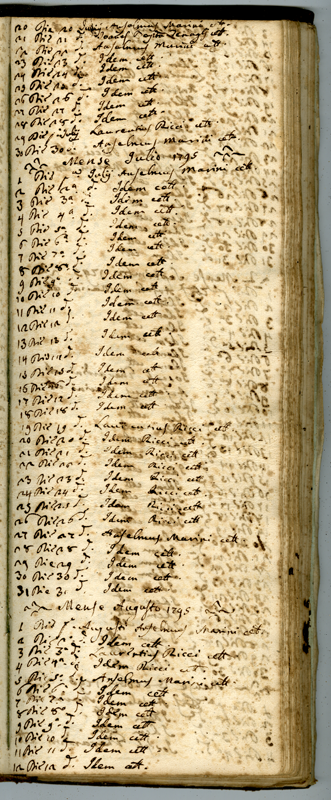 20 Die 20 d.
21 Die 21 d.
22 Die 22 d. Anselmus Marini cett.
23 Die 23 d. Idem cett.
24 Die 24 d. Idem cett.
25 Die 25 d. Idem cett.
26 Die 26 d. Idem cett.
27 Die 27 d. Idem cett.
28 Die 28 d. Idem cett.
29 Die Laurentius Ricci cett.
30 Die 30 Anselmus Marini cett.
Mense Julio 1795
Die July Anselmus Marini cett.
2 Die 2ª d. Idem cett.
3 Die 3ª d. Idem cett.
4 Die 4ª d. Idem cett.
5 Die 5ª d. Idem cett.
6 Die 6ª d. Idem cett.
7 Die 7ª d. Idem cett.
8 Die 8ª d. Idem cett.
9 Die 9ª d. Idem cett.
10 Die 10 d. Idem cett.
11 Die 11 d. Idem cett.
12 Die 12 d. Idem cett.
13 Die d. Idem cett.
14 Die d. Idem cett.
15 Die d. Idem cett.
16 Die Idem cett.
17 Die d. Idem cett.
18 Die 18 d. Idem cett.
19 Die 19 d. Laurentius Ricci cett.
20 Die 20 d. Idem Ricci cett.
21 Die 21 d. Idem Ricci cett.
22 Die d. Idem Ricci cett.
23 Die 23 d. Idem Ricci cett.
24 Die 24 d. Idem Ricci cett.
25 Die 25 d. Idem Ricci cett.
26 Die 26 d. Idem Ricci cett.
27 Die 27 d. Anselmus Marini cett.
28 Die 28 d. Idem cett.
29 Die 29 d. Idem cett.
30 Die 30 d. Idem cett.
31 Die 31 d. Idem cett.
Mense Augusto 1795
1 Die Augusti Anselmus Marini cett.
2 Die d. Idem cett.
3 Die 3ª d. Laurentius Ricci cett.
4 Die 4ª d. Idem Ricci cett.
5 Die 5ª d. Anselmus Marini cett.
6 Die 6ª d. Idem cett.
7 Die 7ª d. Idem cett.
8 Die 8ª d. Idem cett.
9 Die 9ª d. Idem cett.
10 Die 10 d. Idem cett.
11 Die 11 d. Idem cett.
12 Die 12 d. Idem cett.